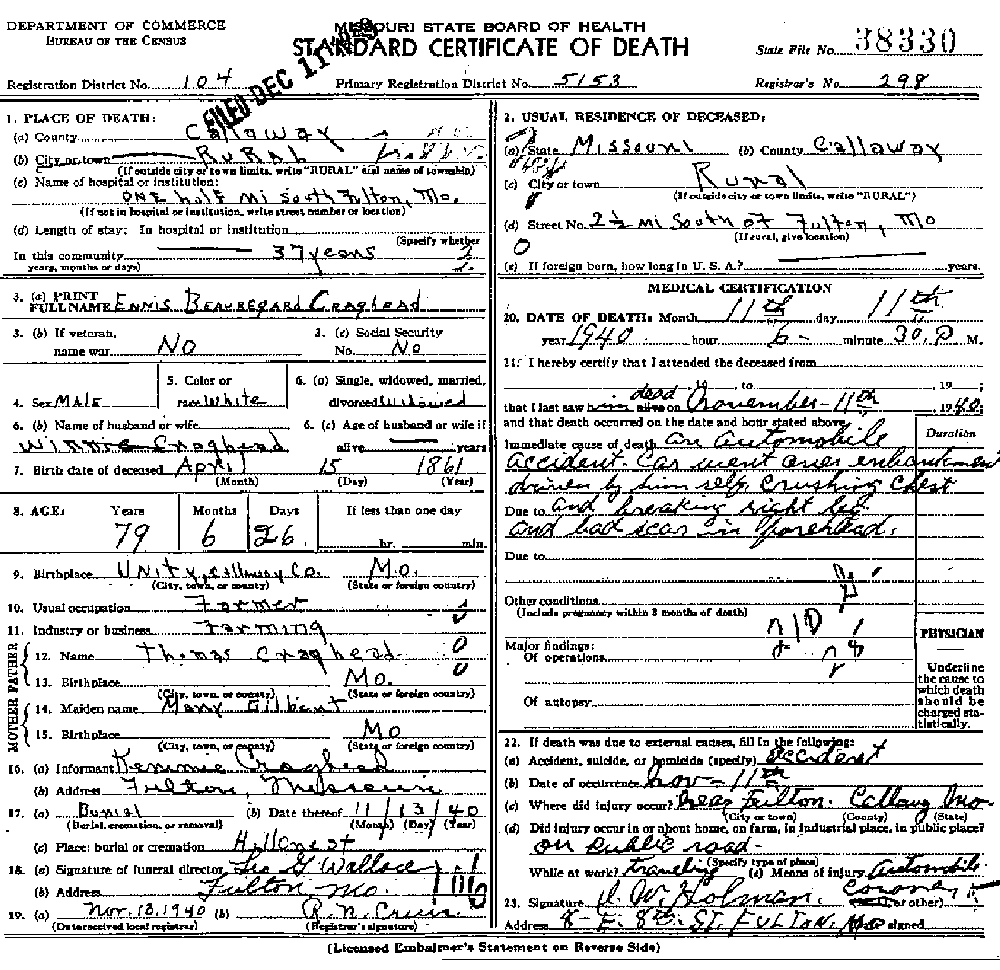 DEPARTMENT OF COMMERCE
BUREAU OF THE CENSUS
MISSOURI STATE BOARD OF HEALTH
STANDARD CERTIFICATE OF DEATH
FILED DEC 11
State File No. 38330
Registration District No. 104
Primary Registration District No. 5153
Registrar's No. 298
1. PLACE OF DEATH:
(a) County Callaway
(b) City or town RURAL
(If outside city or town limits, write "RURAL" and name of township)
(c) Name of hospital or institution:
one half mi South Fulton, Mo.
(If not in hospital or institution, write street number or location)
(d) Length of stay: In hospital or institution
(Specify whether
In this community 37 years
years, months or days)
3. (a) PRINT FULL NAME Ennis Beauregard Craghead
3. (b) If veteran, name war No
3. (c) Social Security No. No
4. Sex MALE
5. Color or race White
6. (a) Single, widowed, married, divorced Widowed
6. (b) Name of husband or wife Winnie Craghead
6. (c) Age of husband or wife if alive years
7. Birth date of deceased April 15 1861
(Month) (Day) (Year)
8. AGE: Years Months Days If less than one day
79 6 26 hr. min.
9. Birthplace Unity, Callaway Co. Mo.
(City, town, or county) (State or foreign country)
10. Usual occupation Farmer
11. Industry or business Farming
MOTHER FATHER
12. Name Thomas Craghead
13. Birthplace Mo.
(City, town, or county) (State or foreign country)
14. Maiden name Mary Gilbert
15. Birthplace Mo
(City, town, or county) (State or foreign country)
16. (a) Informant Craghead
(b) Address Fulton, Missouri
17. (a) Burial (b) Date thereof 11/13/40
(Burial, cremation, or removal) (Month) (Day) (Year)
(c) Place: burial or cremation Hillcrest
18. (a) Signature of funeral director Wallace
(b) Address Fulton Mo.
19. (a) Nov. 13, 1940 (b) R. N. Crews
(Date received local registrar) (Registrar's signature)
2. USUAL RESIDENCE OF DECEASED:
(a) State Missouri (b) County Callaway
(c) City or town Rural
(If outside city or town limits, write "RURAL")
(d) Street No. 2½ mi South of Fulton, Mo
(If rural, give location)
(e) If foreign born, how long in U. S. A.? years.
MEDICAL CERTIFICATION
20. DATE OF DEATH: Month 11th day 11th
year 1940 hour 6- minute 30 P. M.
21. I hereby certify that I attended the deceased from
, 19 , to , 19 ;
that I last saw him dead alive on November - 11th, 1940;
and that death occurred on the date and hour stated above.
Duration
Immediate cause of death an automobile
accident. Car went over enbankment
driven by him self, crushing chest
Due to and breaking right leg
and bad scar in forehead.
Due to
Other conditions
(Include pregnancy within 3 months of death)
Major findings:
Of operations
Of autopsy
PHYSICIAN
Underline the cause to which death should be charged statistically.
22. If death was due to external causes, fill in the following:
(a) Accident, suicide, or homicide (specify) accident
(b) Date of occurrence Nov - 11th
(c) Where did injury occur? near Fulton. Callaway Mo
(City or town) (County) (State)
(d) Did injury occur in or about home, on farm, in industrial place, in public place?
on public road-
(Specify type of place)
While at work? traveling (e) Means of injury Automobile
23. Signature Holman. Coroner (or other)
Address 8 E. 8th ST. FULTON, Mo Date signed
(Licensed Embalmer's Statement on Reverse Side)